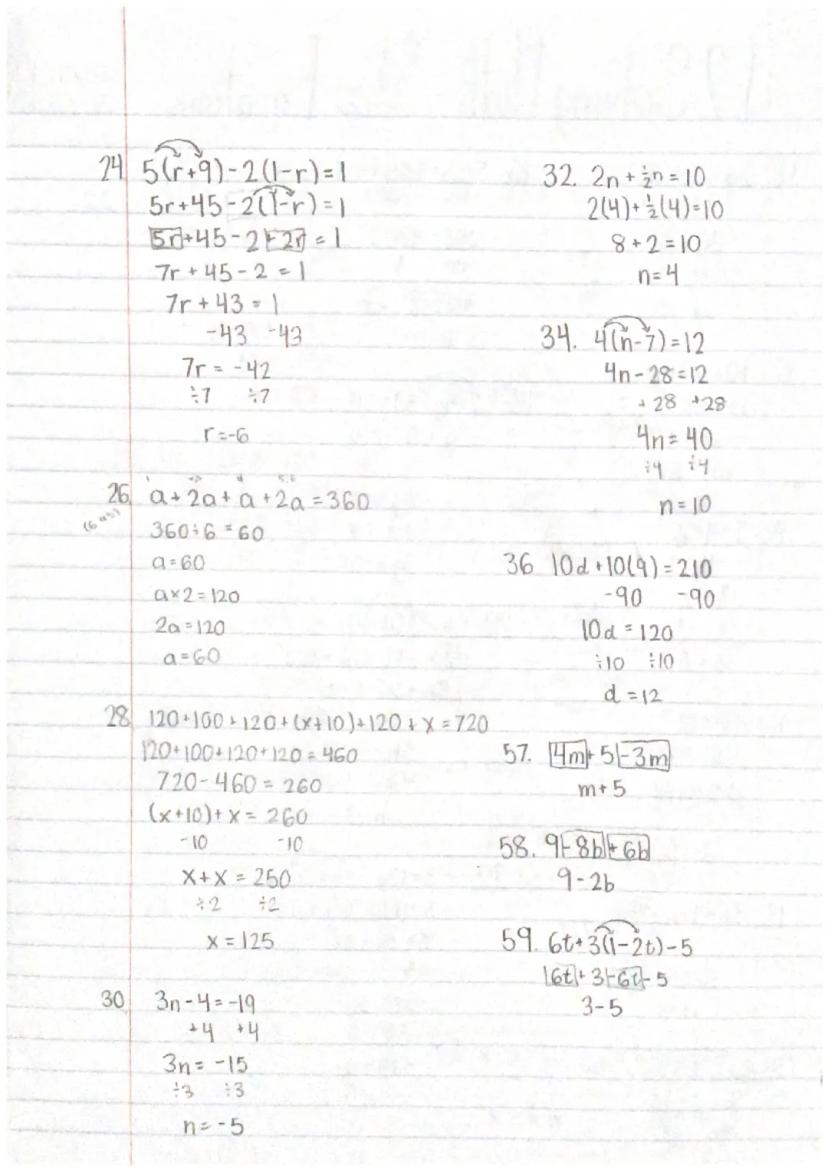 24 5(r+9)-2(1-r)=1
5r+45-2(1-r)=1
5r+45-2+2r=1
7r+45-2=1
7r+43=1
-43 -43
7r=-42
÷7 ÷7
r=-6
26 a+2a+a+2a=360
360÷6=60
a=60
a×2=120
2a=120
a=60
28 120+100+120+(x+10)+120+x=720
120+100+120+120=460
720-460=260
(x+10)+x=260
-10 -10
x+x=250
÷2 ÷2
x=125
30 3n-4=-19
+4 +4
3n=-15
÷3 ÷3
n=-5
32. 2n+½n=10
2(4)+½(4)=10
8+2=10
n=4
34. 4(n-7)=12
4n-28=12
+28 +28
4n=40
÷4 ÷4
n=10
36 10d+10(9)=210
-90 -90
10d=120
÷10 ÷10
d=12
57. 4m+5-3m
m+5
58. 9-8b+6b
9-2b
59. 6t+3(1-2t)-5
6t+3-6t-5
3-5